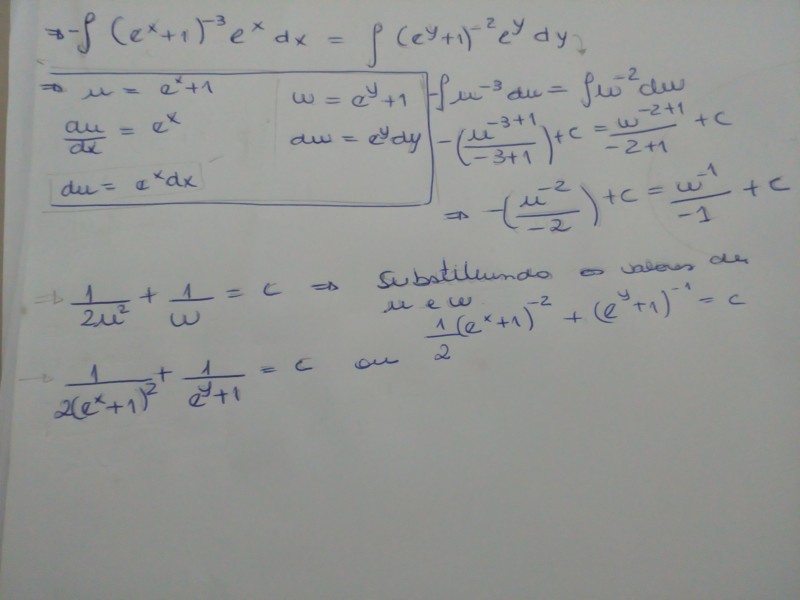 ⇒ -∫ (eˣ+1)⁻³ eˣ dx = ∫ (eʸ+1)⁻² eʸ dy
⇒ u = eˣ+1
du/dx = eˣ
du = eˣdx
w = eʸ+1
dw = eʸdy
-∫ u⁻³ du = ∫ w⁻² dw
-(u⁻³⁺¹/-3+1) + c = w⁻²⁺¹/-2+1 + c
⇒ -(u⁻²/-2) + c = w⁻¹/-1 + c
⇒ 1/2u² + 1/w = c ⇒ Substituindo os valores de
u e w
1/2 (eˣ+1)⁻² + (eʸ+1)⁻¹ = c
→ 1/2(eˣ+1)² + 1/eʸ+1 = c ou